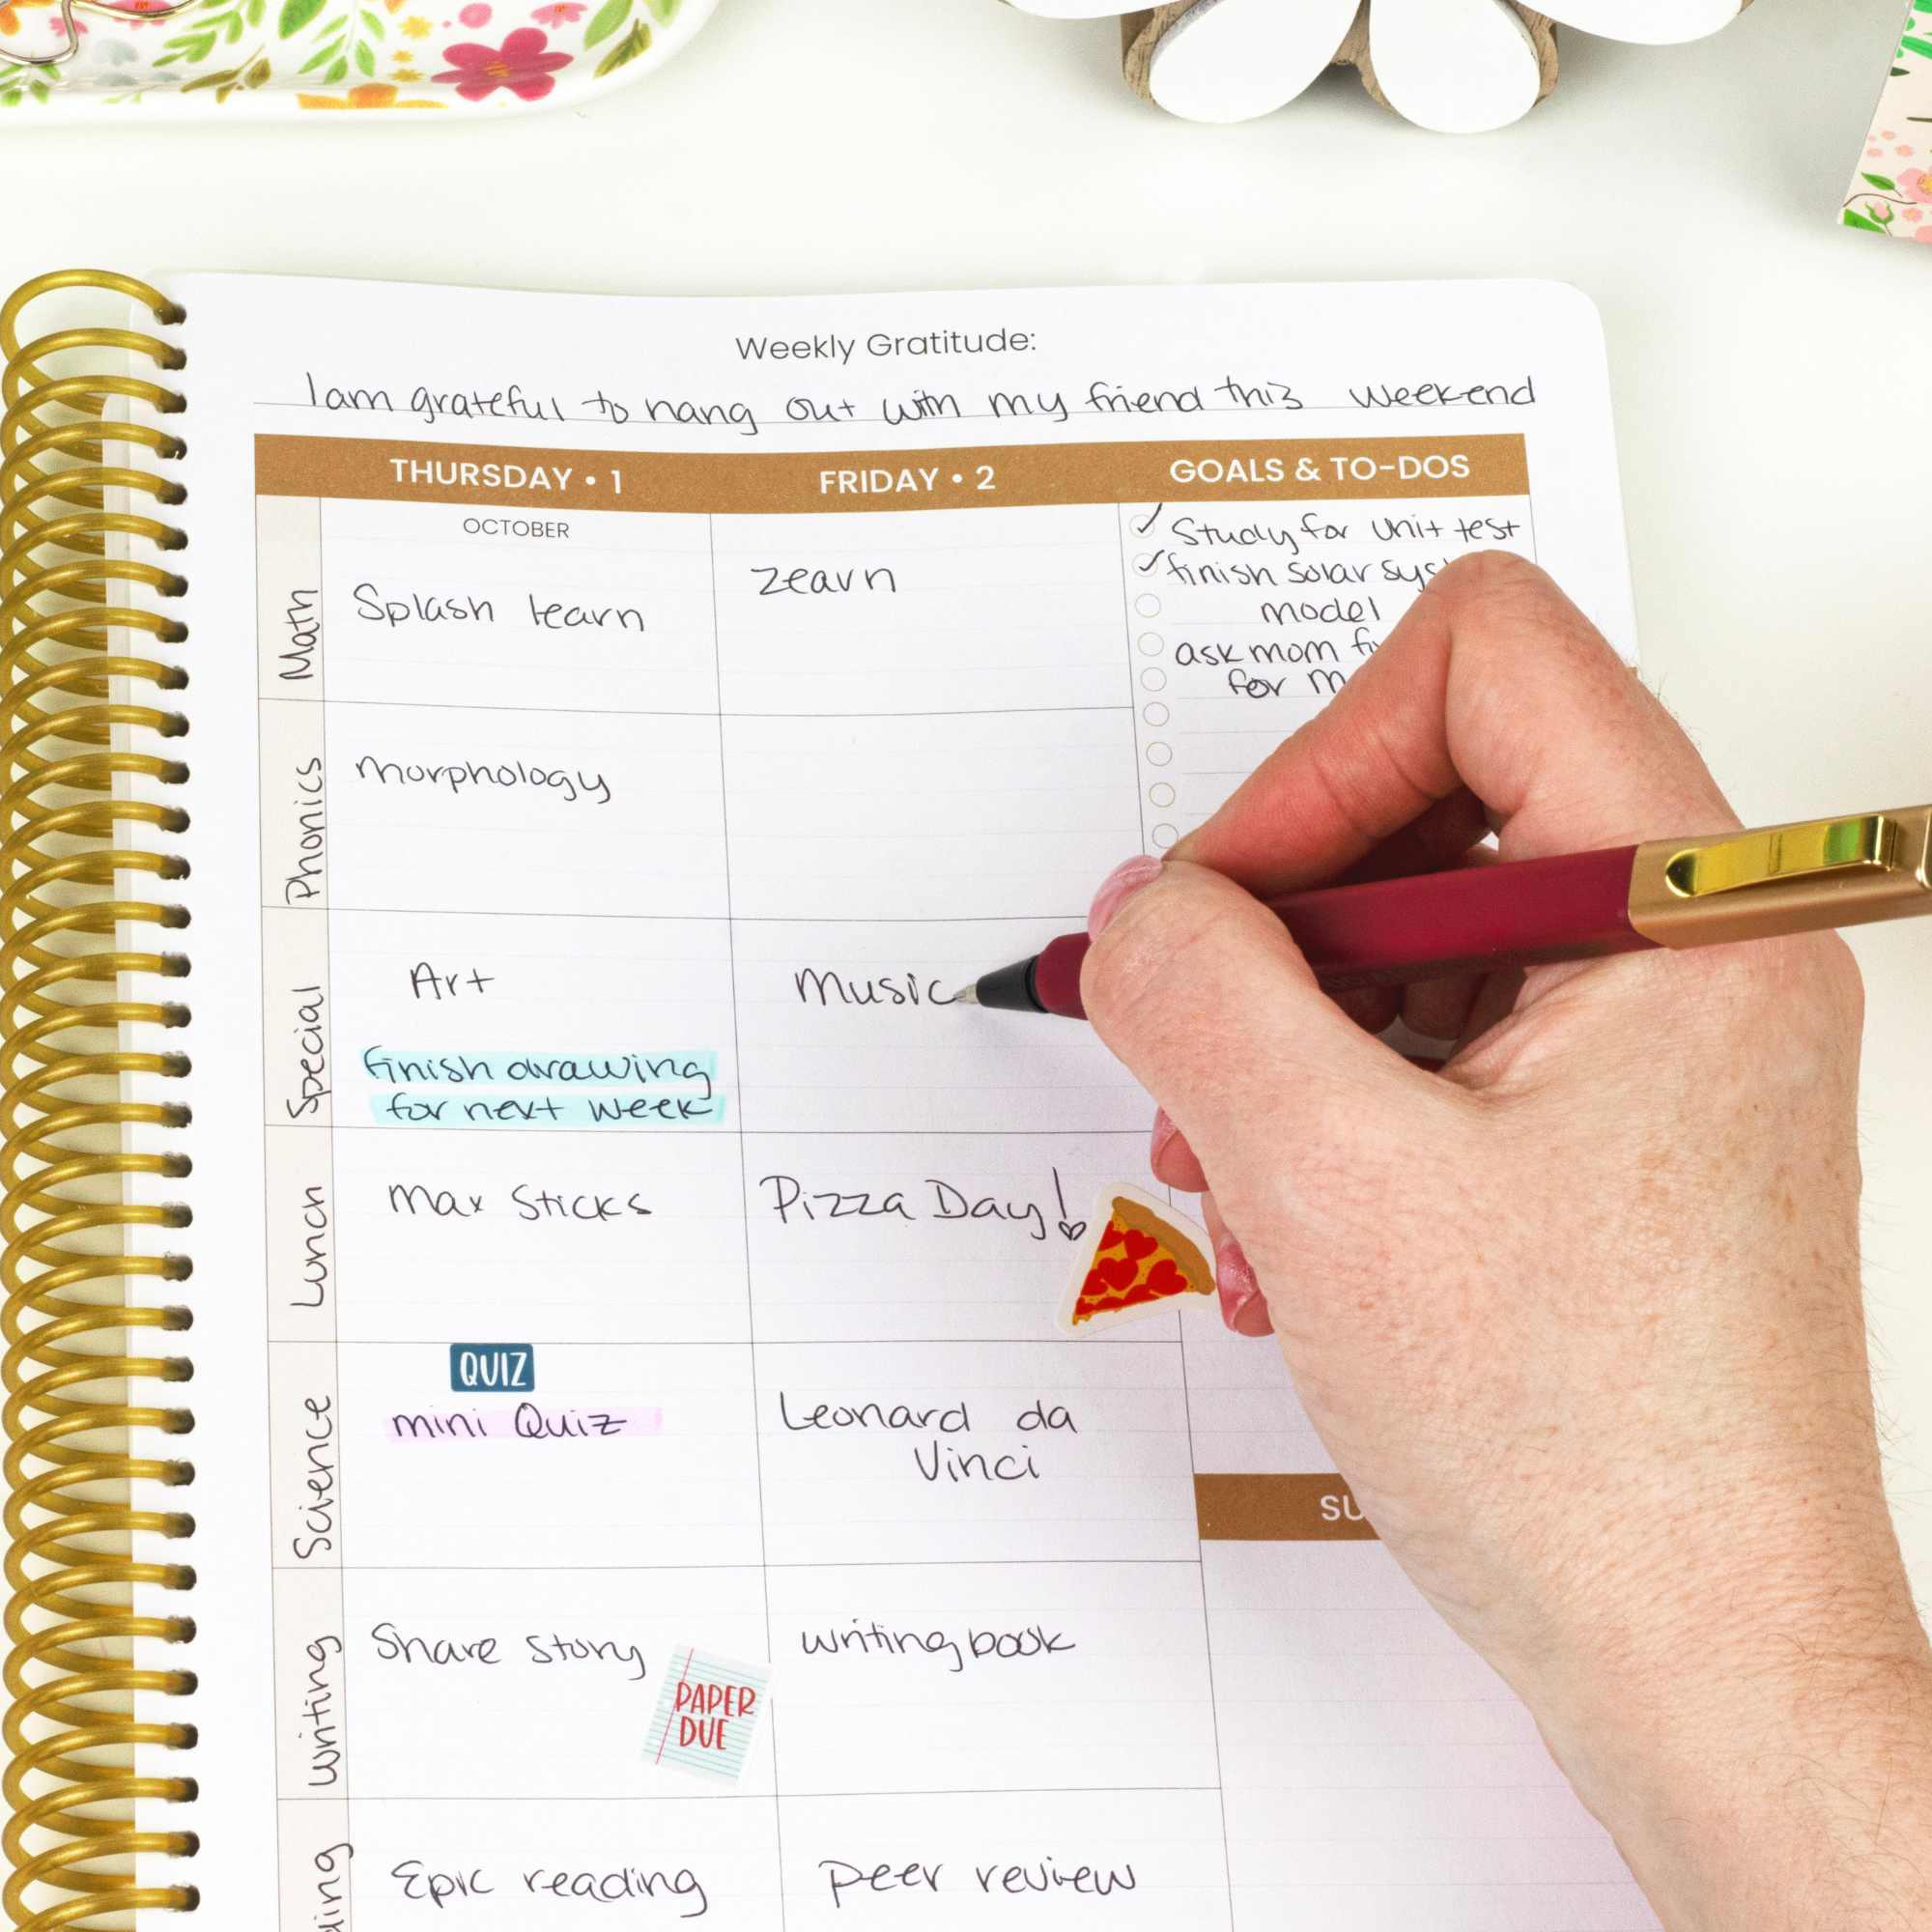 Weekly Gratitude:
I am grateful to hang out with my friend this weekend
THURSDAY • 1
FRIDAY • 2
GOALS & TO-DOS
OCTOBER
Math
Splash learn
zearn
Study for unit test
finish solar
model
ask mom
for
Phonics
morphology
Special
Art
finish drawing
for next week
music
Lunch
Max Sticks
Pizza Day!
Science
QUIZ
mini Quiz
Leonard da
Vinci
Writing
Share story
PAPER
DUE
writing book
Epic reading
peer review